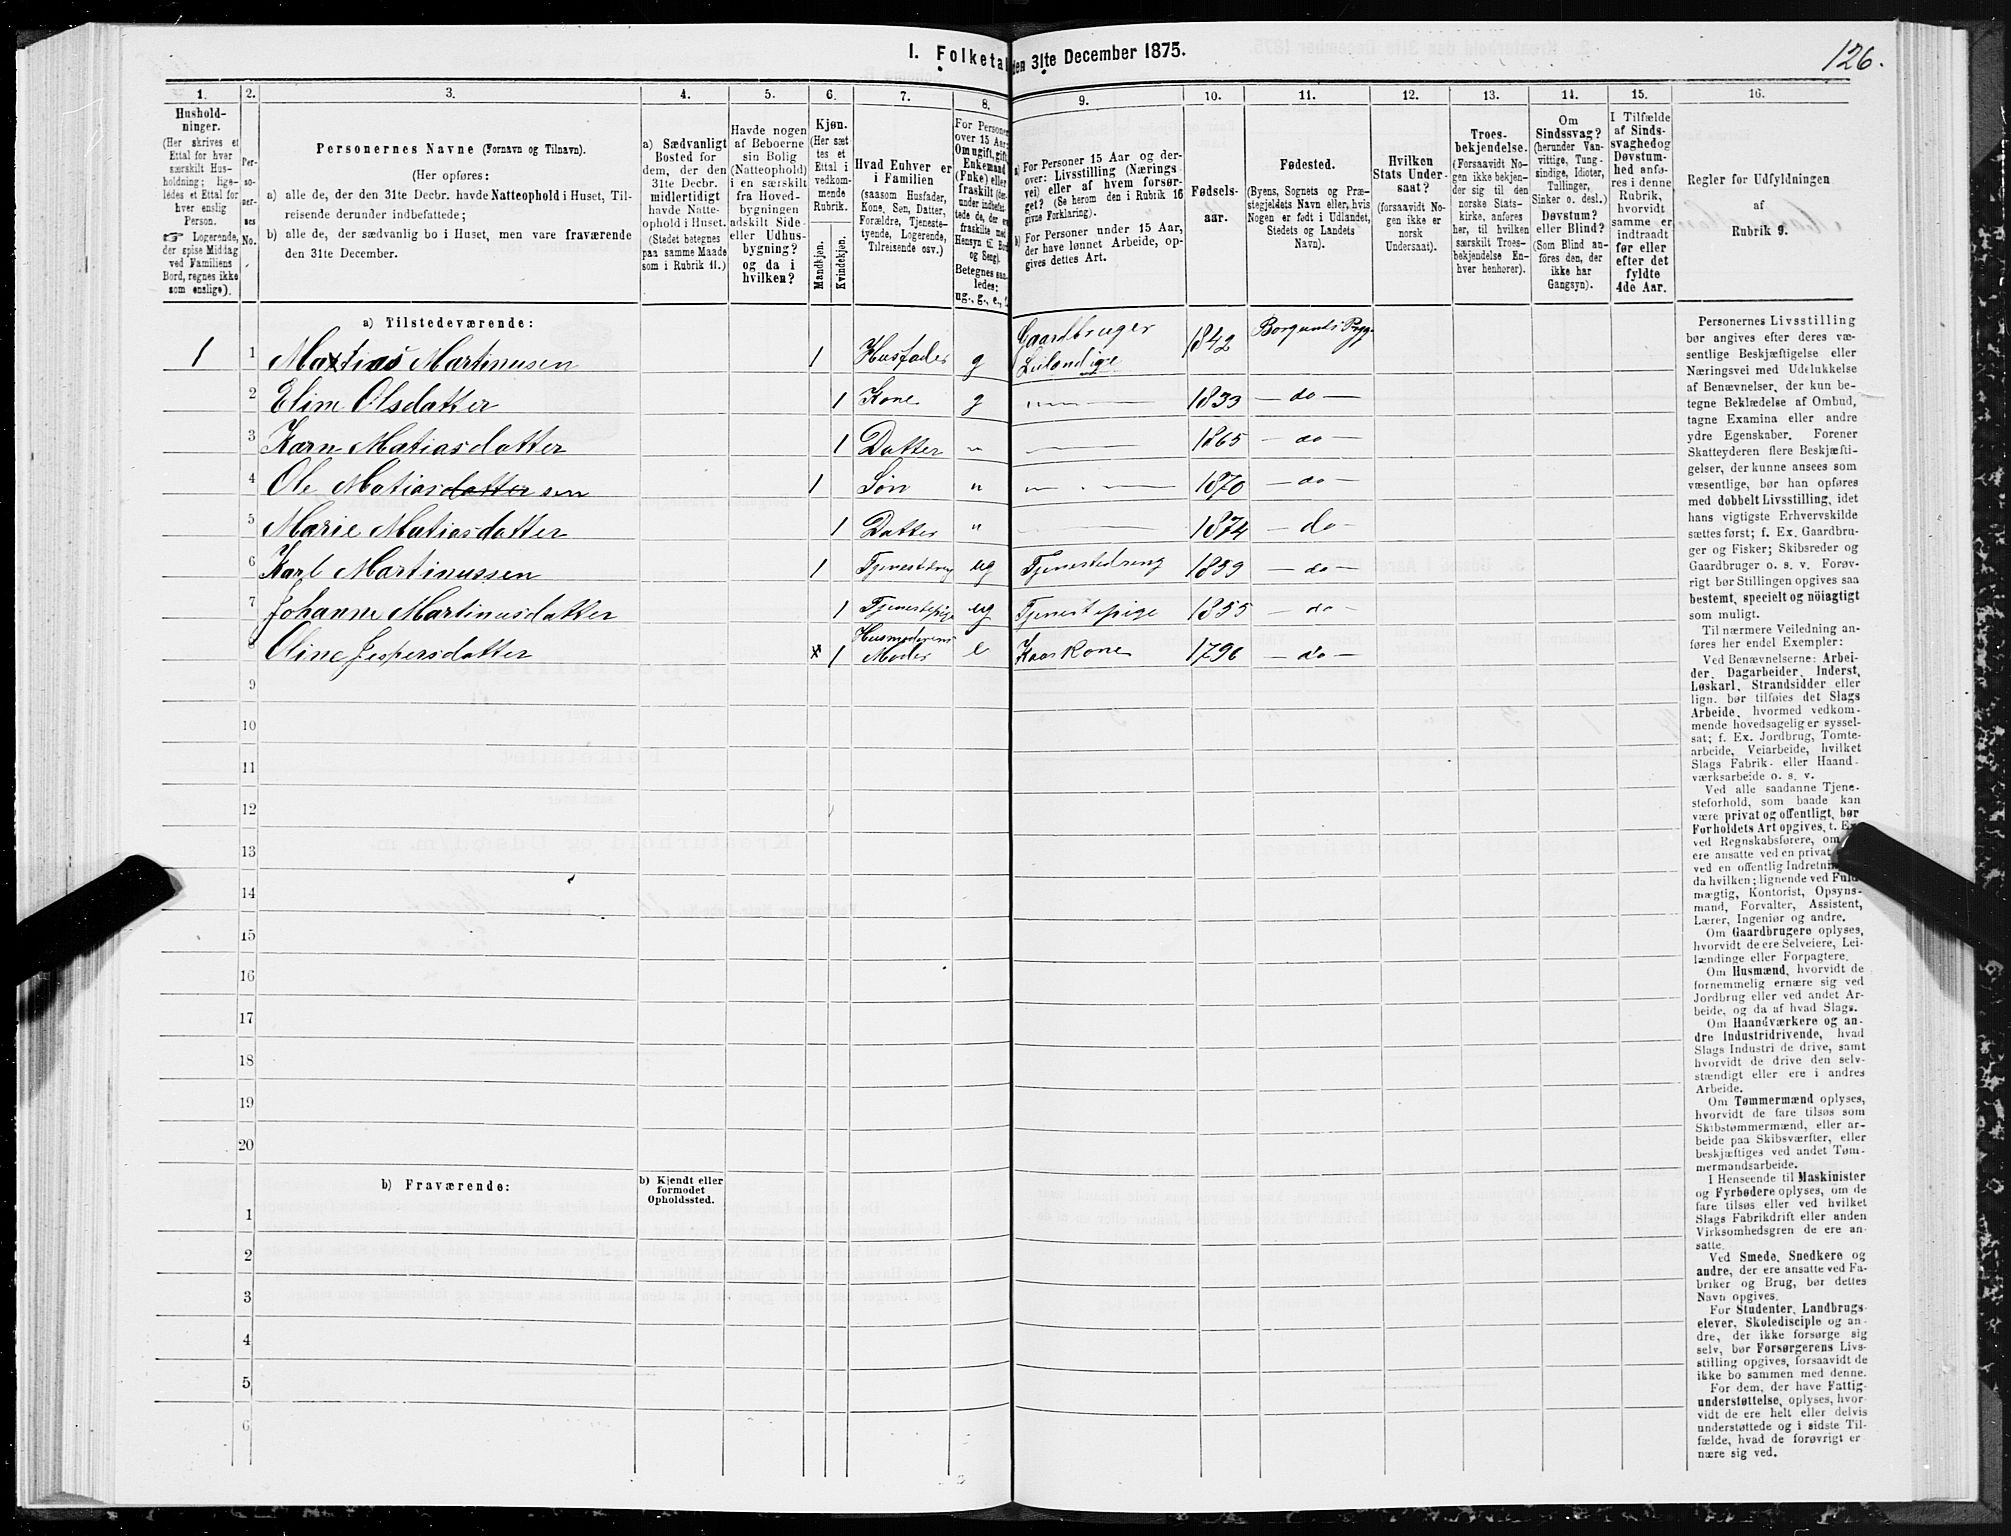 I. Folketal den 31te December 1875.
126.
1. 2. 3. 4. 5. 6. 7. 8. 9. 10. 11. 12. 13. 14. 15. 16.
Hushold-
ninger.
(Her skrives et
Ettal for hver
særskilt Hus-
holdning; lige-
ledes et Ettal for
hver enslig
Person.
☞ Logerende,
der spise Middag
ved Familiens
Bord, regnes ikke
som enslige).
Per-
so-
ner-
nes
No.
Personernes Navne (Fornavn og Tilnavn).
(Her opføres:
a) alle de, der den 31te Decbr. havde Natteophold i Huset, Til-
reisende derunder indbefattede;
b) alle de, der sædvanlig bo i Huset, men vare fraværende
den 31te December.
a) Sædvanligt
Bosted for
dem, der den
31te Decbr.
midlertidigt
havde Natte-
ophold i Huset.
(Stedet betegnes
paa samme Maade
som i Rubrik 11.)
Havde nogen
af Beboerne
sin Bolig
(Natteophold)
i en særskilt
fra Hoved-
bygningen
adskilt Side-
eller Udhus-
bygning?
og da i
hvilken?
Kjøn.
(Her sæt-
tes et
Ettal i
vedkom-
mende
Rubrik.
Mandkjøn.
Kvindekjøn.
Hvad Enhver er
i Familien
(saasom Husfader,
Kone, Søn, Datter,
Forældre, Tjeneste-
tyende, Logerende,
Tilreisende osv.)
For Personer
over 15 Aar:
Om ugift, gift,
Enkemand
(Enke) eller
fraskilt (der-
under indbefat-
tede de, der ere
fraskilte med
Hensyn til Bord
og Seng).
Betegnes saa-
ledes:
ug., g., e.,
a) For Personer 15 Aar og der-
over: Livsstilling (Nærings-
vei) eller af hvem forsør-
get? (Se herom den i Rubrik 16
givne Forklaring).
b) For Personer under 15 Aar,
der have lønnet Arbeide, op-
gives dettes Art.
Fødsels-
aar.
Fødested.
(Byens, Sognets og Præ-
stegjeldets Navn eller, hvis
Nogen er født i Udlandet,
Stedets og Landets
Navn).
Hvilken
Stats Under-
saat?
(forsaavidt No-
gen ikke er
norsk
Undersaat).
Troes-
bekjendelse.
(Forsaavidt No-
gen ikke bekjen-
der sig til den
norske Stats-
kirke, anføres
her, til hvilken
særskilt Troes-
bekjendelse En-
hver henhorer).
Om
Sindssvag?
(herunder Van-
vittige, Tung-
sindige, Idioter,
Tullinger,
Sinker o. desl.)
Døvstum?
eller Blind?
(Som Blind an-
føres den, der
ikke har
Gangsyn).
I Tilfælde
af Sinds-
svaghed og
Døvstum-
hed anfø-
res i denne
Rubrik,
hvorvidt
samme er
indtraadt
før eller
efter det
fyldte
4de Aar.
Regler før Udfyldningen
af
Rubrik 9.
a) Tilstedeværende:
1 1 Matias Martinusen 1 Husfader g Gaardbruger Leilændige 1842 Borgunds Prgj.
2 Eline Olsdatter 1 Kone g — — 1833 — do —
3 Karn Matiasdatter 1 Datter " — 1865 — do —
4 Ole Matiasdatter sen 1 Søn " — — 1870 — do —
5 Marie Matiasdatter 1 Datter " — 1874 — do —
6 Karl Martinussen 1 Tjenestedreng ug Tjenestedreng 1859 — do —
7 Johanne Martinusdatter 1 Tjenestepige ug Tjenestepige 1855 — do —
8 Oline Jespersdatter x 1 Husmoderens Moder e Kaarkone 1796 — do —
9
10
11
12
13
14
15
16
17
18
19
20
b) Fraværende:
b) Kjendt eller
formodet
Opholdssted.
1
2
3
4
5
6
Personernes Livsstilling
bør angives efter deres væ-
sentlige Beskjæftigelse eller
Næringsvei med Udelukkelse
af Benævnelser, der kun be-
tegne Beklædelse af Ombud,
tagne Examina eller andre
ydre Egenskaber. Forener
Skatteyderen flere Beskjæfti-
gelser, der kunne ansees som
væsentlige, bør han opføres
med dobbelt Livsstilling, idet
hans vigtigste Erhvervskilde
sættes først; f. Ex. Gaardbru-
ger og Fisker; Skibsreder og
Gaardbruger o. s. v. Forøv-
rigt bør Stillingen opgives saa
bestemt, specielt og nöiagtigt
som muligt.
Til nærmere Veiledning an-
føres her endel Exempler:
Ved Benævnelserne: Arbei-
der, Dagarbeider, Inderst,
Løskarl, Strandsidder eller
lign. bør tilføies det Slags
Arbeide, hvormed vedkom-
mende hovedsagelig er syssel-
sat; f. Ex. Jordbrug, Tomte-
arbeide, Veiarbeide, hvilket
Slags Fabrik- eller Haand-
værksarbeide o. s. v.
Ved alle saadanne Tjene-
steforhold, som baade kan
være privat og offentligt, bør
Forholdets Art opgives, t. Ex.
ved Regnskabsførere, om
ere ansatte ved en privat
ved en offentlig Indretning
da hvilken; lignende ved Fuld-
mægtig, Kontorist, Opsyns-
mand, Forvalter, Assistent,
Lærer, Ingeniør og andre.
Om Gaardbrugere oplyses,
hvorvidt de ere Selveiere, Lei-
lændinge eller Forpagtere.
Om Husmænd, hvorvidt de
fornemmelig ernære sig ved
Jordbrug eller ved andet Ar-
beide, og da af hvad Slags.
Om Haandværkere og an-
dre Industridrivende, hvad
Slags Industri de drive, samt
hvorvidt de drive den selv-
stændigt eller ere i andres
Arbeide.
Om Tømmermænd oplyses,
hvorvidt de fare tilsøs som
Skibstømmermænd, eller ar-
beide paa Skibsværfter, eller
beskjæftiges ved andet Tøm-
mermandsarbeide.
I Henseende til Maskinister
og Fyrbødere oplyses, om de
fare tilsøs eller ved hvilket
Slags Fabrikdrift eller anden
Virksomhedsgren de ere an-
satte.
Ved Smede, Snedkere og
andre, der ere ansatte ved Fa-
briker og Brug, bør dettes
Navn opgives.
For Studenter, Landbrugs-
elever, Skoledisciple og an-
dre, der ikke forsørge sig
selv, bør Forsørgerens Livs-
stilling opgives, forsaavidt de
ikke bo sammen med denne.
For dem, der have Fattig-
understøttelse, oplyses, hvor-
vidt de ere helt eller delvis
understøttede og i sidste Til-
fælde, hvad de forøvrigt er-
nære sig ved.